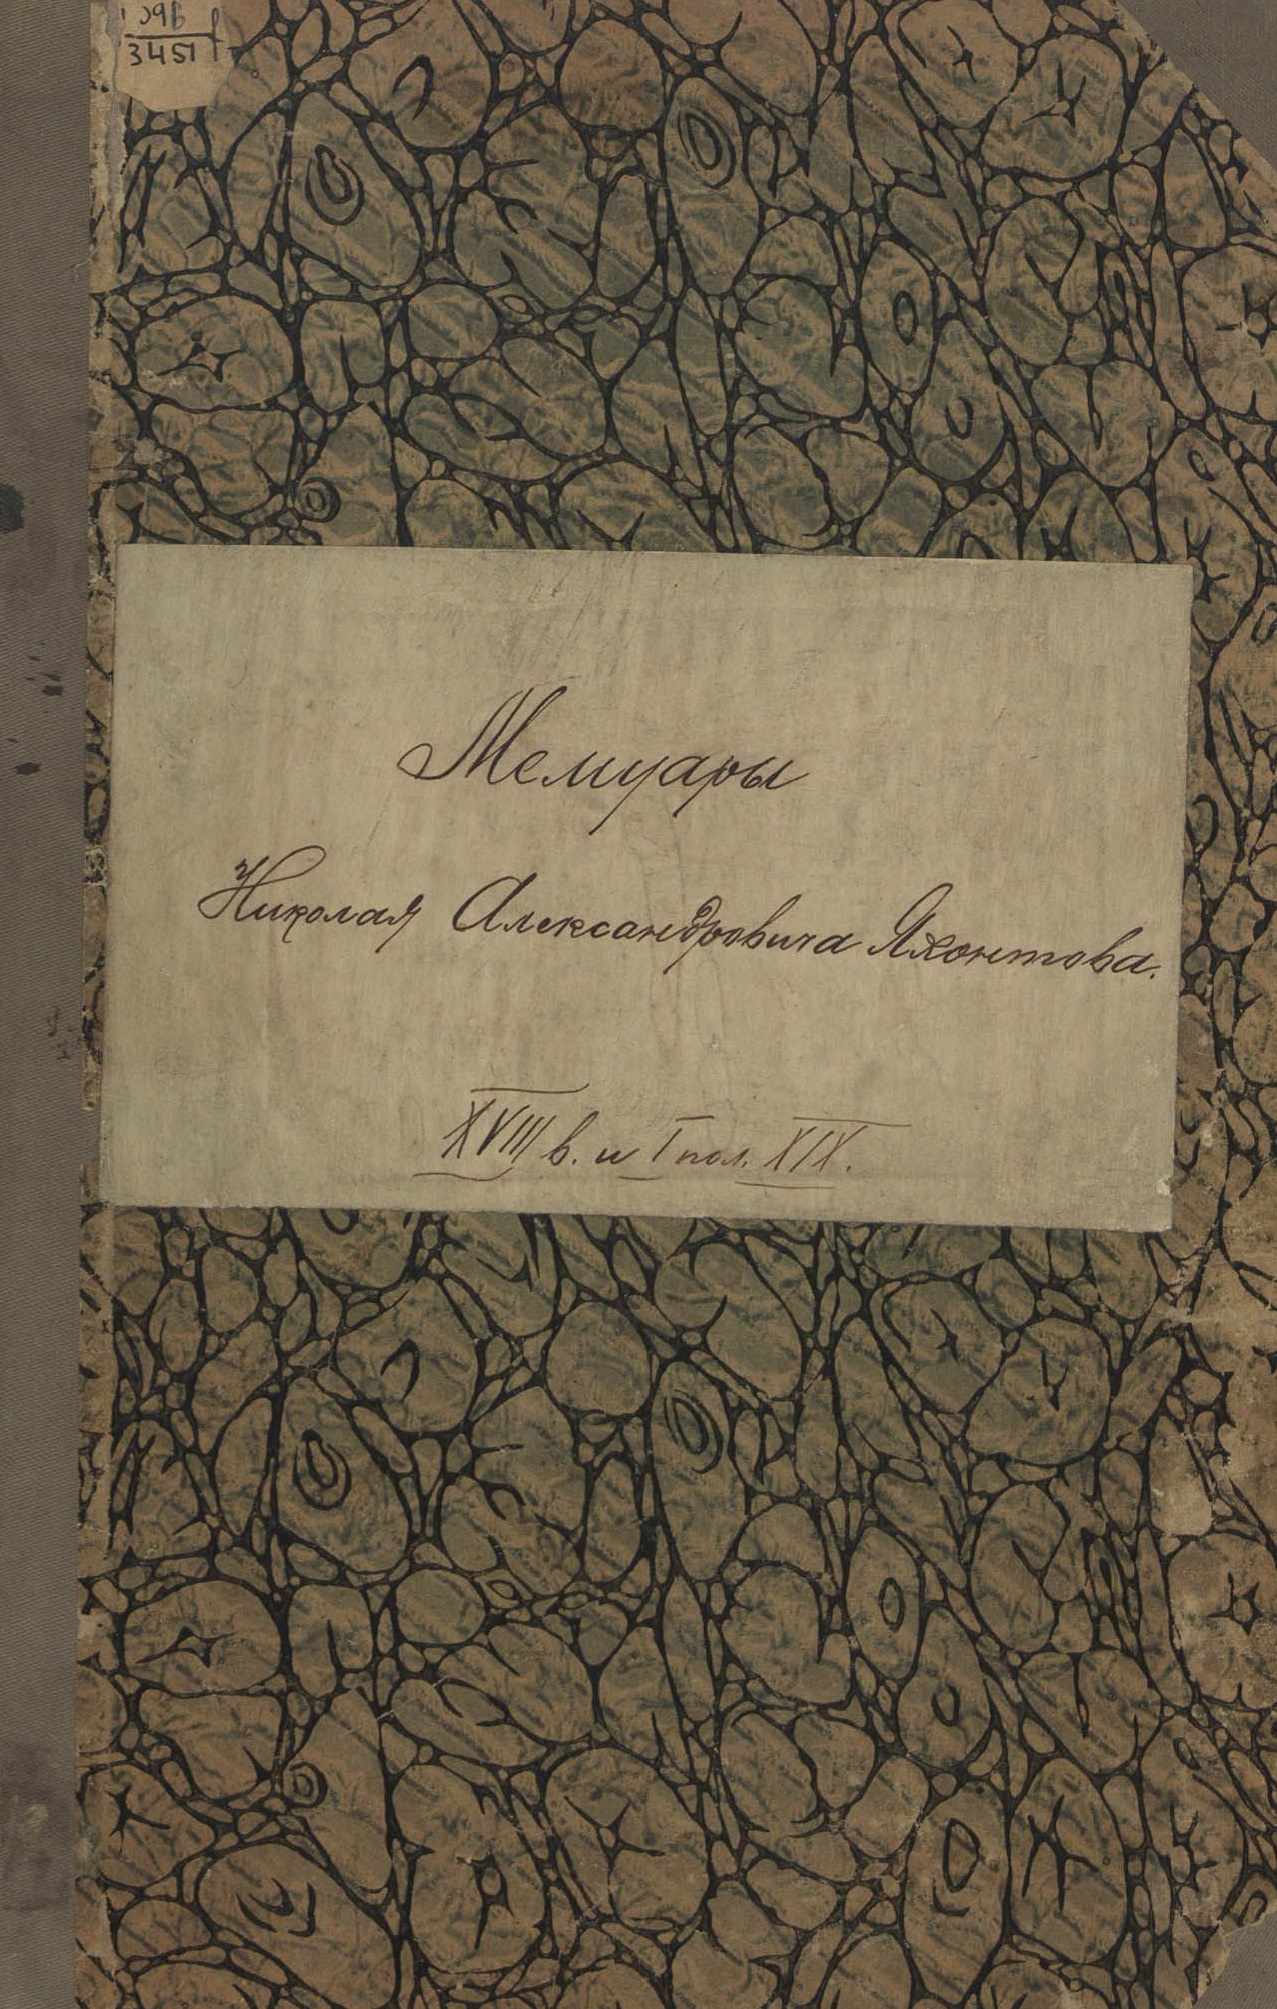 3451
Мемуары
Николая Александровича Яхонтова.
XVIII в. и I пол. XIX.